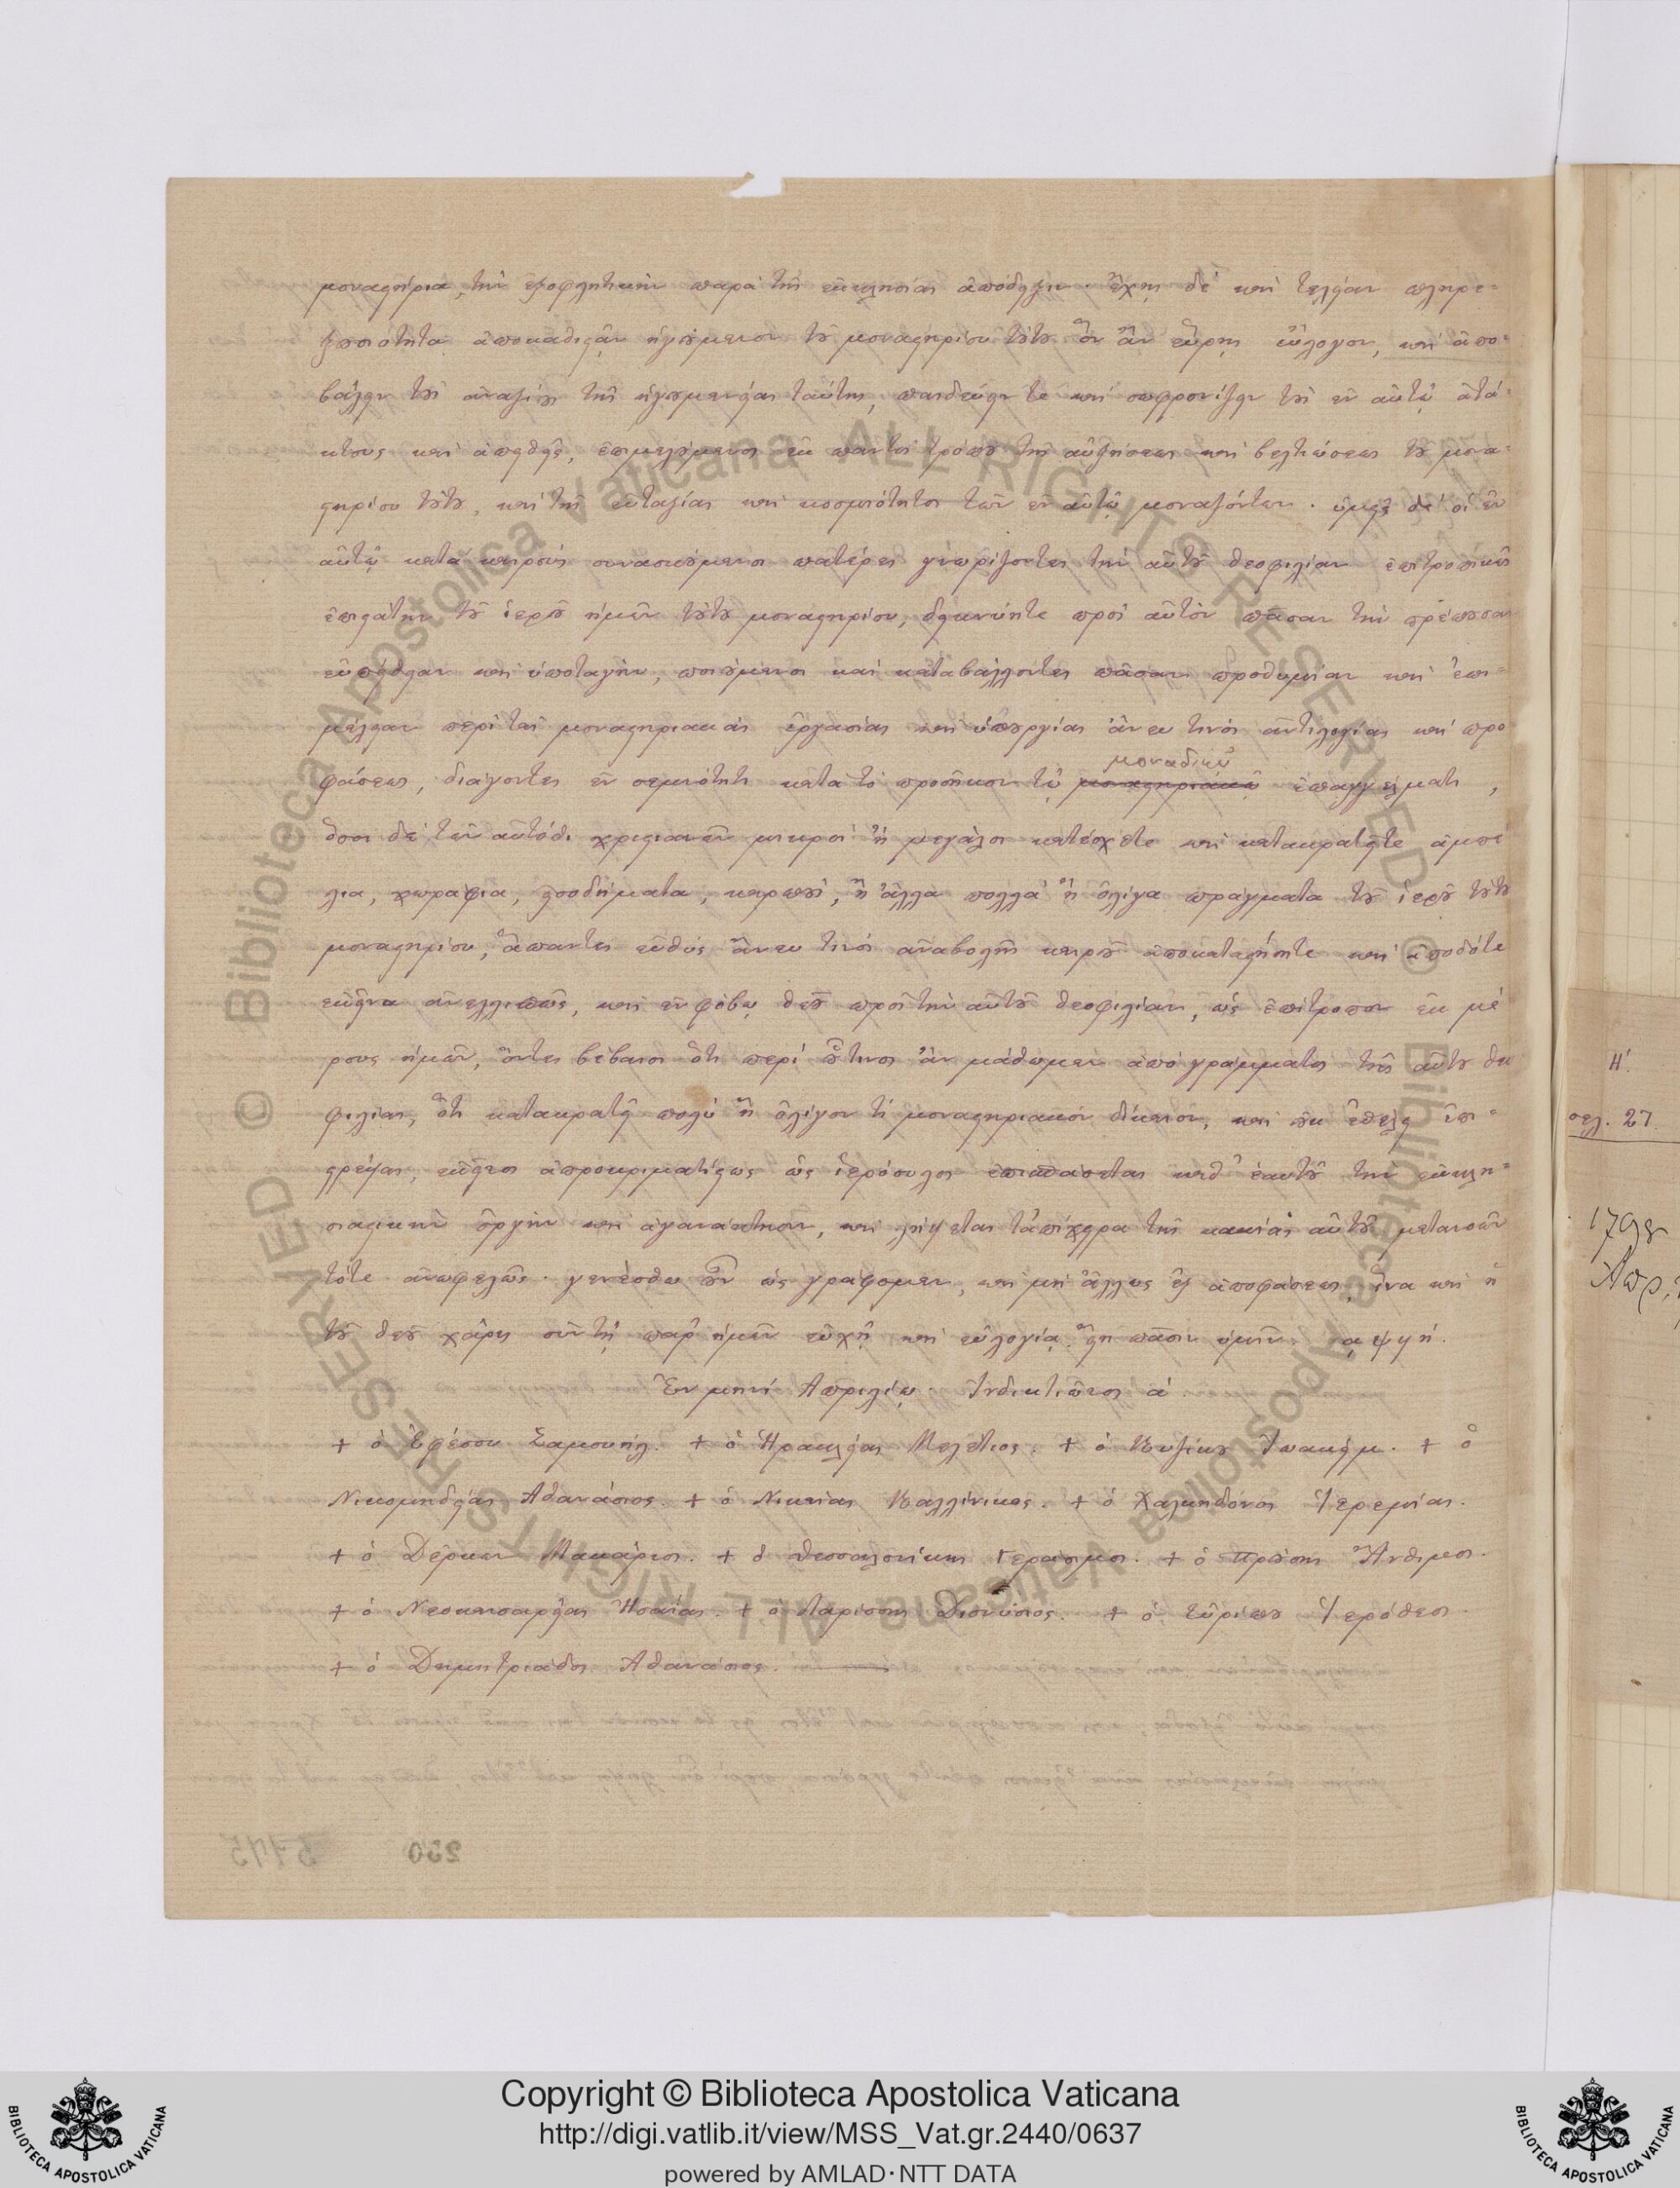 μοναστήρια, τὴν ἐξοφλητικὴν παρὰ τῆς ἐκκλησίας ἀπόδειξιν. ἔχῃς δὲ καὶ τελείαν πληρε-
ξουσιότητα ἀποκαθιστᾶν ἡγούμενον τοῦ μοναστηρίου τούτου ὃν ἂν εὕρῃς εὔλογον, καὶ ἀπο-
βάλλειν τοὺς ἀναξίους τῆς ἡγουμενείας ταύτης, παιδεύειν τε καὶ σωφρονίζειν τοὺς ἐν αὐτῷ ἀτά-
κτους καὶ ἀπειθεῖς, ἐπιμελούμενος ἐκ παντὸς τρόπου τῆς αὐξήσεως καὶ βελτιώσεως τοῦ μονα-
στηρίου τούτου, καὶ τῆς εὐταξίας καὶ κοσμιότητος τῶν ἐν αὐτῷ μοναζόντων. ὑμεῖς δὲ οἱ ἐν
αὐτῷ κατὰ καιροὺς συνασκούμενοι πατέρες γνωρίζοντες τὴν αὐτοῦ θεοφιλίαν ἐπιτροπικῶς
ἐπιστάτην τοῦ ἱεροῦ ἡμῶν τούτου μοναστηρίου, δεικνύητε πρὸς αὐτὸν πᾶσαν τὴν πρέπουσαν
εὐπείθειαν καὶ ὑποταγὴν, ποιούμενοι καὶ καταβάλλοντες πᾶσαν προθυμίαν καὶ ἐπι-
μέλειαν περὶ τὰς μοναστηριακὰς ἐργασίας καὶ ὑπουργίας ἄνευ τινὸς ἀντιλογίας καὶ προ
φάσεως, διάγοντες ἐν σεμνότητι κατὰ τὸ προσῆκον τῷ μοναστηριακῷ μοναδικῷ ἐπαγγέλματι,
ὅσοι δὲ τῶν αὐτόθι χριστιανῶν μικροὶ ἢ μεγάλοι κατέσχετε καὶ κατακρατεῖτε ἀμπέ
λια, χωράφια, εἰσοδήματα, καρποὺς, ἢ ἄλλα πολλὰ ἢ ὀλίγα πράγματα τοῦ ἱεροῦ τούτου
μοναστηρίου, ἅπαντες εὐθὺς ἄνευ τινὸς ἀναβολῆς καιροῦ ἀποκαταστήσητε καὶ ἀποδότε
ἐκεῖνα ἀνελλιπῶς, καὶ ἐν φόβῳ θεοῦ πρὸς τὴν αὐτοῦ θεοφιλίαν, ὡς ἐπίτροπον ἐκ μέ
ρους ἡμῶν, ὄντες βέβαιοι ὅτι περὶ οὗτινος ἂν μάθωμεν ἀπὸ γράμματος τῆς αὐτοῦ θεο
φιλίας, ὅτι κατακρατεῖ πολὺ ἢ ὀλίγον τί μοναστηριακὸν δίκαιον, καὶ οὐκ ἔθελε ἐπι-
στρέψαι, ἐκεῖνος ἀπροκριματίστως ὡς ἱερόσυλος ἐπισπάσεται καθ' ἑαυτοῦ τὴν ἐκκλη-
σιαστικὴν ὀργὴν καὶ ἀγανάκτησιν, καὶ λήψεται τἀπίχειρα τῆς κακίας αὐτοῦ μετανοῶν
τότε ἀνωφελῶς. γενέσθω οὖν ὡς γράφομεν, καὶ μὴ ἄλλως ἐξ ἀποφάσεως, ἵνα καὶ ἡ
τοῦ θεοῦ χάρις σὺν τῇ παρ' ἡμῶν εὐχῇ καὶ εὐλογίᾳ εἴη πᾶσιν ὑμῖν. ͵αψϟη.
Ἐν μηνὶ Ἀπριλίῳ. Ἰνδικτιῶνος ά.
+ ὁ Ἐφέσου Σαμουήλ. + ὁ Ἡρακλείας Μελέτιος. + ὁ Κυζίκου Ἰωακείμ. + ὁ
Νικομηδείας Ἀθανάσιος. + ὁ Νικαίας Καλλίνικος. + ὁ Χαλκηδόνος Ἱερεμίας.
+ ὁ Δέρκων Μακάριος. + ὁ Θεσσαλονίκης Γεράσιμος. + ὁ Προύσης Ἄνθιμος.
+ ὁ Νεοκαισαρείας Ἡσαΐας. + ὁ Λαρίσσης Διονύσιος. + ὁ Εὐρίπου Ἱερόθεος.
+ ὁ Δημητριάδος Ἀθανάσιος.
Η΄.
σελ. 27.
179
Ἀπρ.
250
Copyright © Biblioteca Apostolica Vaticana
http://digi.vatlib.it/view/MSS_Vat.gr.2440/0637
powered by AMLAD·NTT DATA
BIBLIOTECA APOSTOLICA VATICANA
BIBLIOTECA APOSTOLICA VATICANA
© Biblioteca Apostolica Vaticana ALL RIGHTS RESERVED © Biblioteca Apostolica Vaticana ALL RIGHTS RESERVED